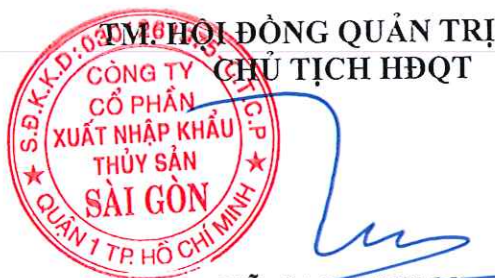 TM. HỘI ĐỒNG QUẢN TRỊ
CHỦ TỊCH HĐQT
S.Đ.K.K.D:
C.T.C.P
CÔNG TY
CỔ PHẦN
XUẤT NHẬP KHẨU
THỦY SẢN
SÀI GÒN
QUẬN 1 TP. HỒ CHÍ MINH